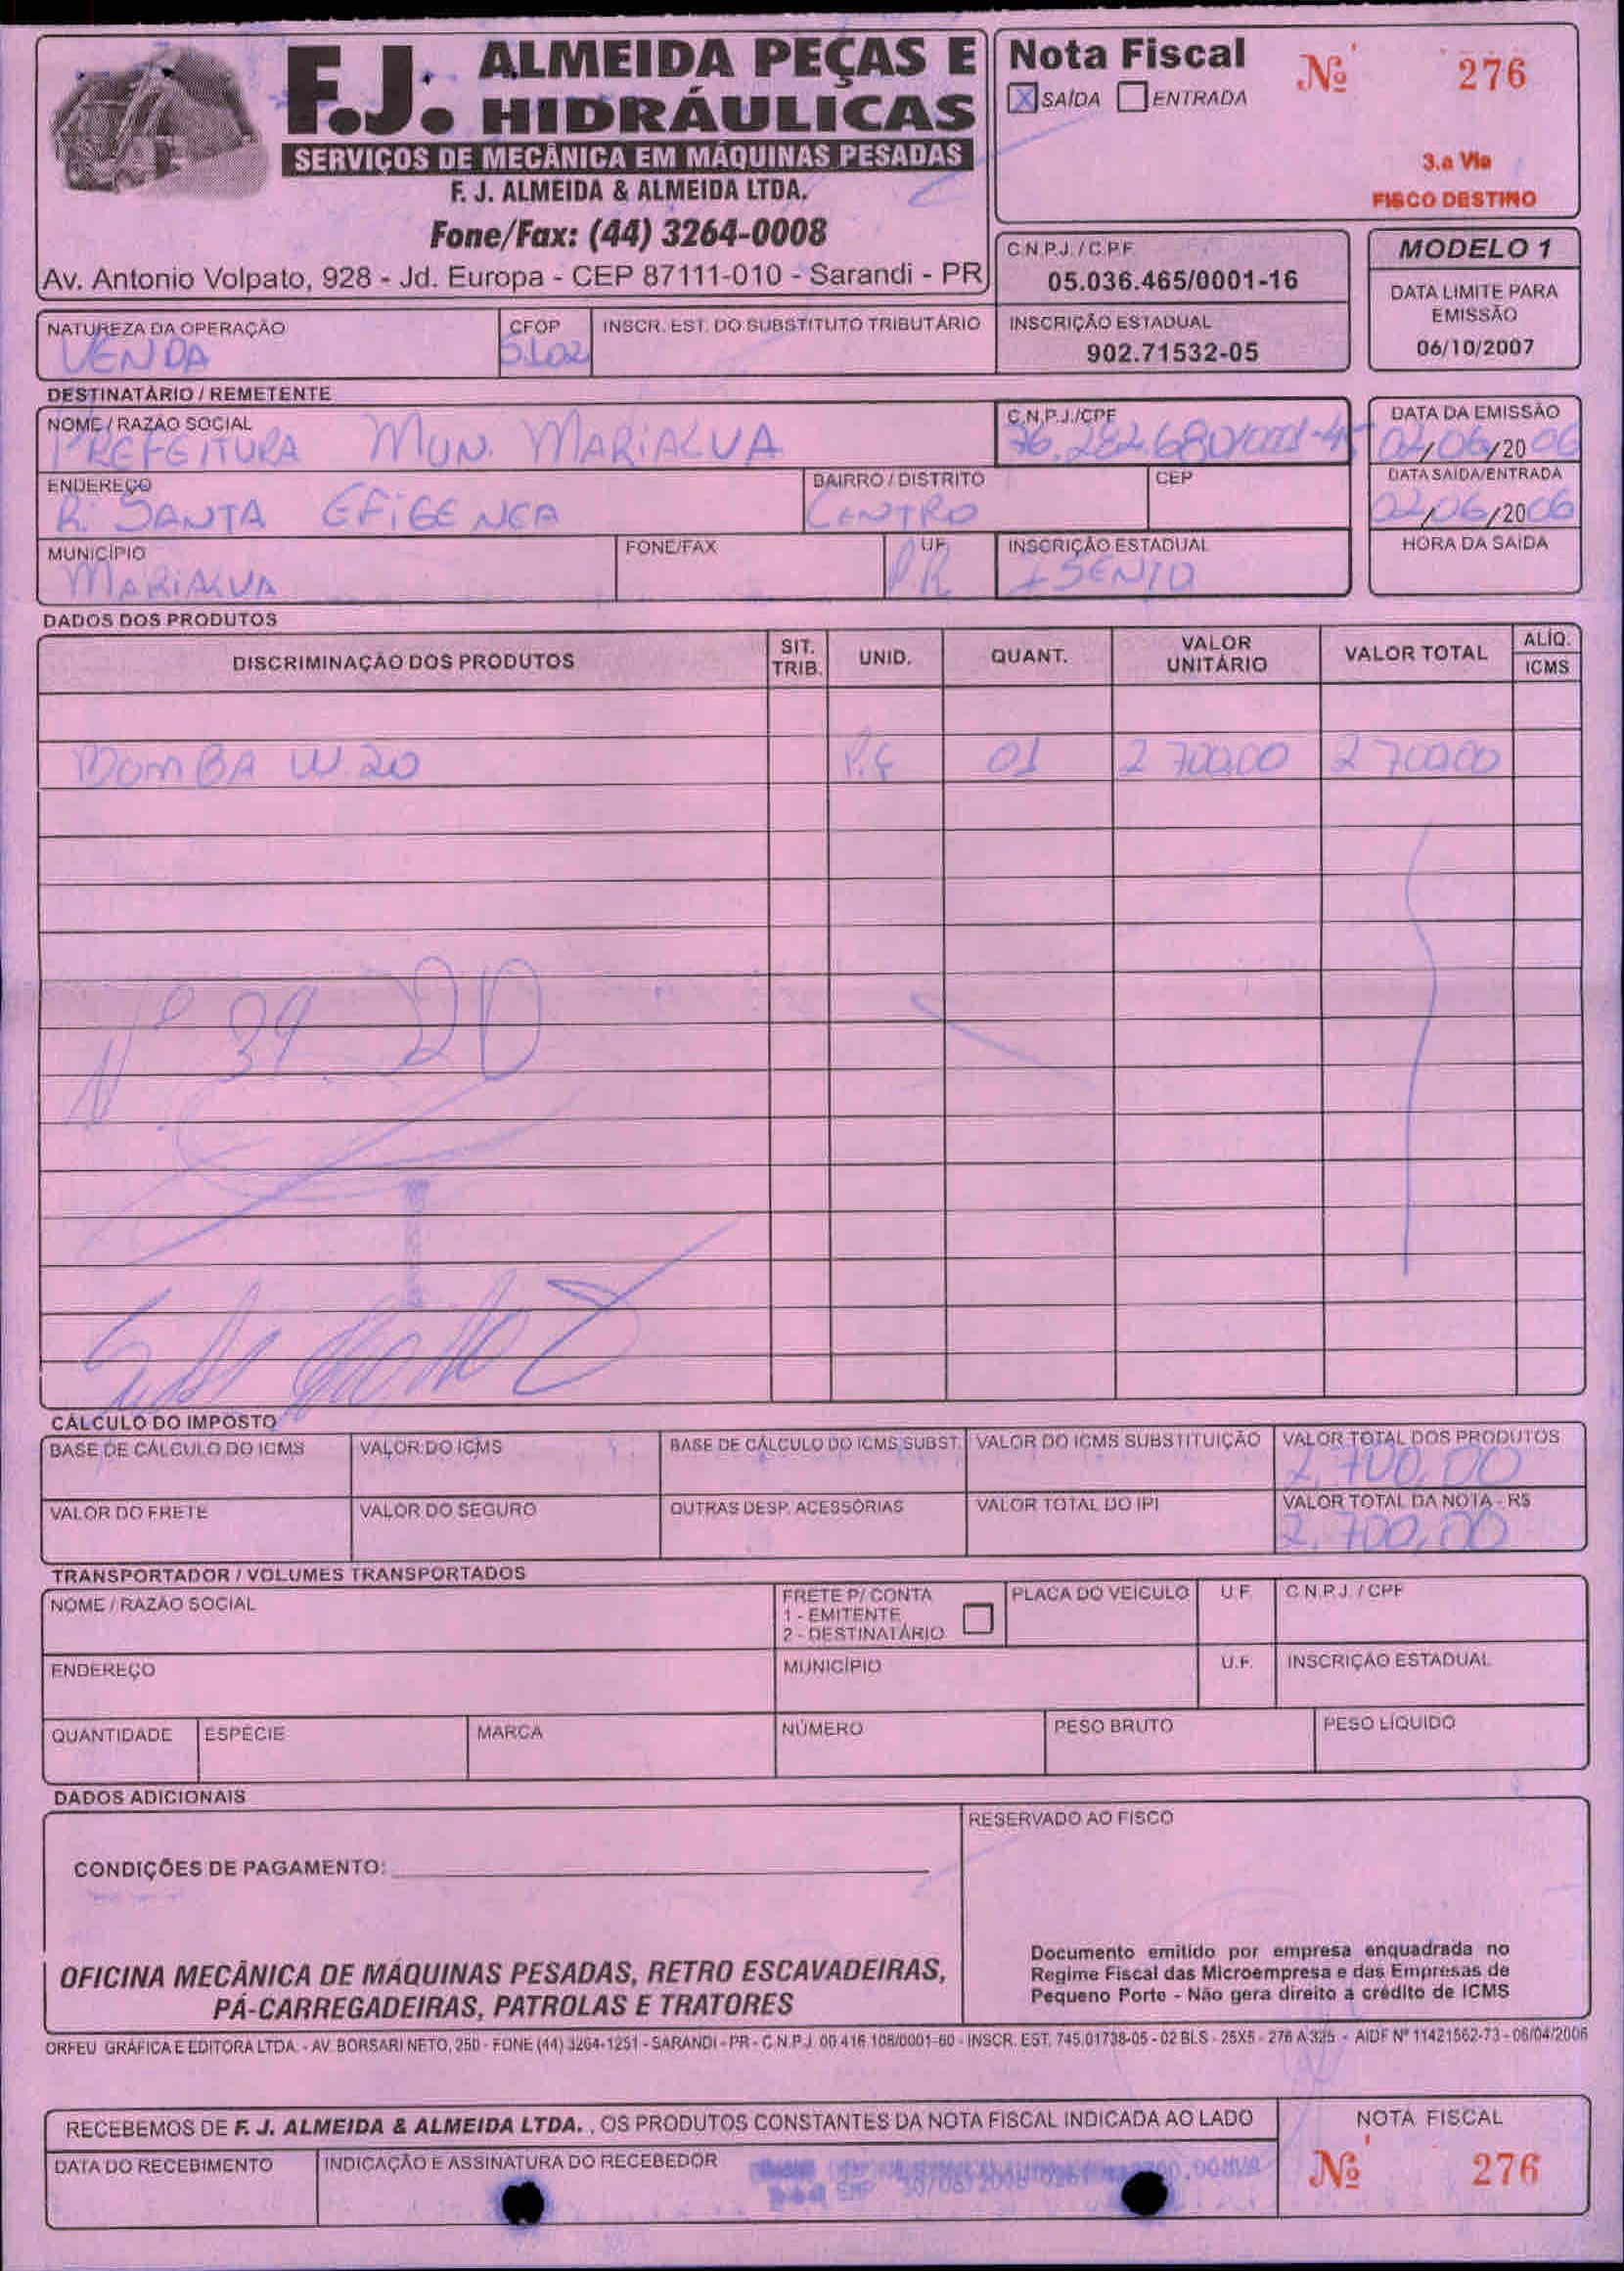 F.J. ALMEIDA PEÇAS E
HIDRÁULICAS
SERVIÇOS DE MECÂNICA EM MÁQUINAS PESADAS
F. J. ALMEIDA & ALMEIDA LTDA.
Fone/Fax: (44) 3264-0008
Av. Antonio Volpato, 928 - Jd. Europa - CEP 87111-010 - Sarandi - PR
Nota Fiscal
Nº 276
X SAÍDA ENTRADA
3.a Via
FISCO DESTINO
C.N.P.J. / C.P.F.
05.036.465/0001-16
MODELO 1
DATA LIMITE PARA
EMISSÃO
06/10/2007
NATUREZA DA OPERAÇÃO
VENDA
CFOP
5.102
INSCR. EST. DO SUBSTITUTO TRIBUTÁRIO
INSCRIÇÃO ESTADUAL
902.71532-05
DESTINATÁRIO / REMETENTE
NOME / RAZÃO SOCIAL
PREFEITURA MUN. MARIALVA
C.N.P.J./CPF
76.282.680/0001-45
DATA DA EMISSÃO
02/06/2006
ENDEREÇO
R. SANTA EFIGENCA
BAIRRO / DISTRITO
CENTRO
CEP
DATA SAÍDA/ENTRADA
02/06/2006
MUNICÍPIO
MARIALVA
FONE/FAX
UF
PR
INSCRIÇÃO ESTADUAL
ISENTO
HORA DA SAÍDA
DADOS DOS PRODUTOS
DISCRIMINAÇÃO DOS PRODUTOS SIT. TRIB. UNID. QUANT. VALOR UNITÁRIO VALOR TOTAL ALÍQ. ICMS
BOMBA W 20 PÇ 01 2 700,00 2 700,00
Nº 39
CÁLCULO DO IMPOSTO
BASE DE CÁLCULO DO ICMS
VALOR DO ICMS
BASE DE CÁLCULO DO ICMS SUBST.
VALOR DO ICMS SUBSTITUIÇÃO
VALOR TOTAL DOS PRODUTOS
2.700,00
VALOR DO FRETE
VALOR DO SEGURO
OUTRAS DESP. ACESSÓRIAS
VALOR TOTAL DO IPI
VALOR TOTAL DA NOTA - R$
2.700,00
TRANSPORTADOR / VOLUMES TRANSPORTADOS
NOME / RAZÃO SOCIAL
FRETE P/ CONTA
1 - EMITENTE
2 - DESTINATÁRIO
PLACA DO VEÍCULO
U.F.
C.N.P.J. / CPF
ENDEREÇO
MUNICÍPIO
U.F.
INSCRIÇÃO ESTADUAL
QUANTIDADE
ESPÉCIE
MARCA
NÚMERO
PESO BRUTO
PESO LÍQUIDO
DADOS ADICIONAIS
RESERVADO AO FISCO
CONDIÇÕES DE PAGAMENTO:
OFICINA MECÂNICA DE MÁQUINAS PESADAS, RETRO ESCAVADEIRAS,
PÁ-CARREGADEIRAS, PATROLAS E TRATORES
Documento emitido por empresa enquadrada no
Regime Fiscal das Microempresa e das Empresas de
Pequeno Porte - Não gera direito a crédito de ICMS
ORFEU GRÁFICA E EDITORA LTDA. - AV. BORSARI NETO, 250 - FONE (44) 3264-1251 - SARANDI - PR - C.N.P.J. 00.416.108/0001-60 - INSCR. EST. 745.01738-05 - 02 BLS - 25X5 - 276 A 325 - AIDF Nº 11421562-73 - 06/04/2006
RECEBEMOS DE F. J. ALMEIDA & ALMEIDA LTDA. , OS PRODUTOS CONSTANTES DA NOTA FISCAL INDICADA AO LADO
NOTA FISCAL
Nº 276
DATA DO RECEBIMENTO
INDICAÇÃO E ASSINATURA DO RECEBEDOR